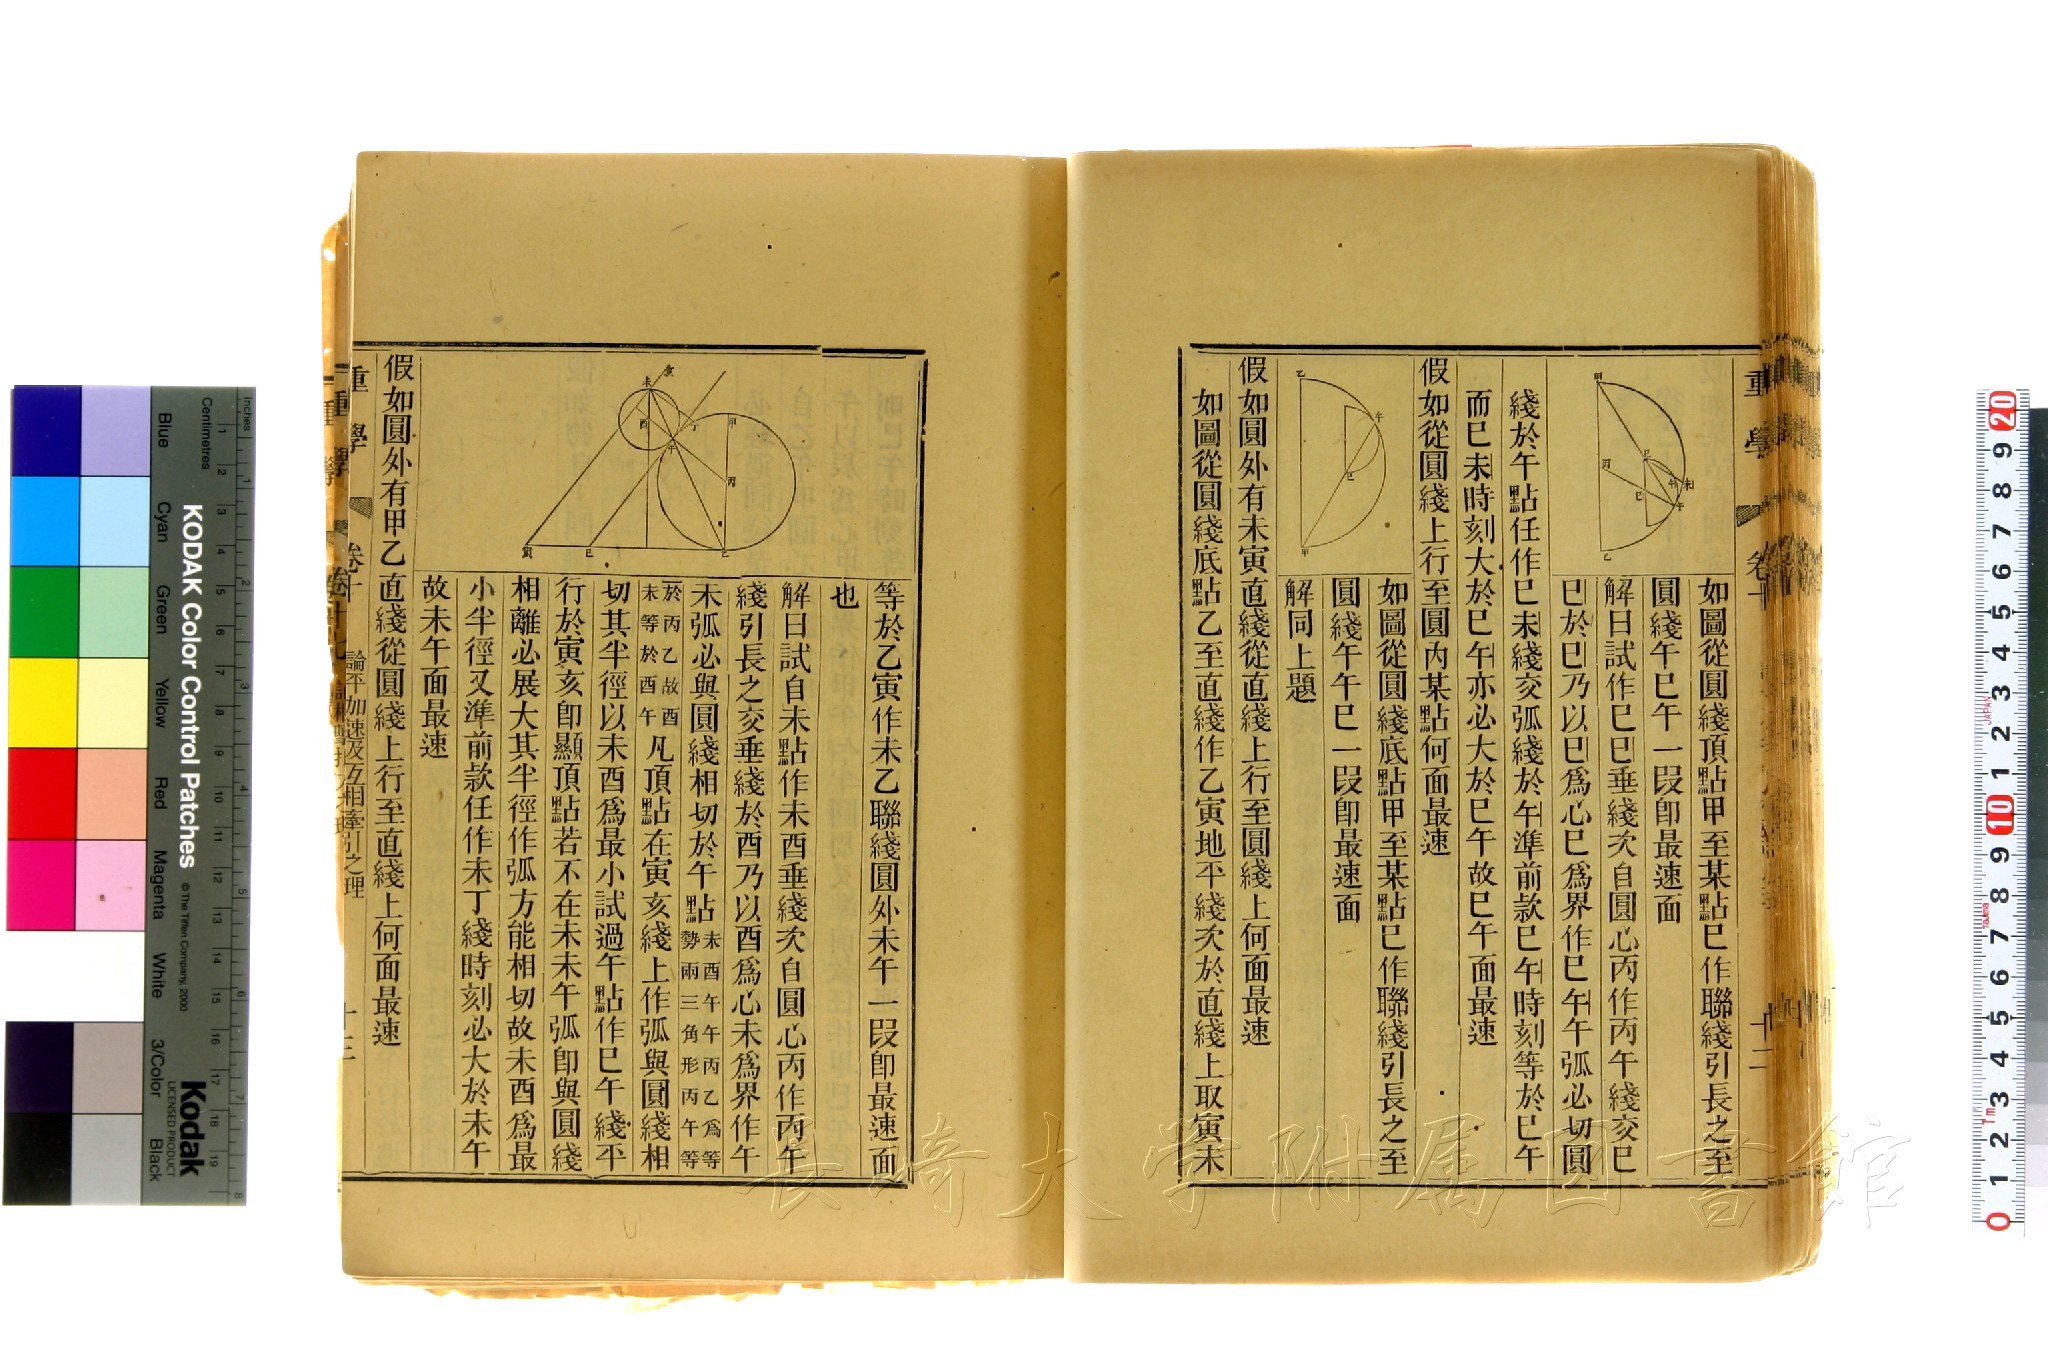 重學
卷十
十二
如圖從圓綫頂點甲至某點巳作聯綫引長之至
圓綫午巳午一叚卽最速面
解曰試作巳巳垂綫次自圓心丙作丙午綫交巳
巳於巳乃以巳爲心巳爲界作巳午午弧必切圓
綫於午點任作巳未綫交弧綫於午準前款巳午時刻等於巳午
而巳未時刻大於巳午亦必大於巳午故巳午面最速
假如從圓綫上行至圓內某點何面最速
如圖從圓綫底點甲至某點巳作聯綫引長之至
圓綫午午巳一叚卽最速面
解同上題
假如圓外有未寅直綫從直綫上行至圓綫上何面最速
如圖從圓綫底點乙至直綫作乙寅地平綫次於直綫上取寅未
等於乙寅作未乙聯綫圓外未午一叚卽最速面
也
解曰試自未點作未酉垂綫次自圓心丙作丙午
綫引長之交垂綫於酉乃以酉爲心未爲界作午
未弧必與圓綫相切於午點未酉午午丙乙爲等
勢兩三角形丙午等
於丙乙故酉
未等於酉午凡頂點在寅亥綫上作弧與圓綫相
切其半徑以未酉爲最小試過午點作巳午綫平
行於寅亥卽顯頂點若不在未未午弧卽與圓綫
相離必展大其半徑作弧方能相切故未酉爲最
小半徑又準前款任作未丁綫時刻必大於未午
故未午面最速
假如圓外有甲乙直綫從圓綫上行至直綫上何面最速
重學
卷十
論平加速及互相牽引之理
十三
長崎大学附属図書館
KODAK Color Control Patches
© The Tiffen Company, 2000
Kodak
LICENSED PRODUCT
Inches
Centimetres
Blue
Cyan
Green
Yellow
Red
Magenta
White
3/Color
Black